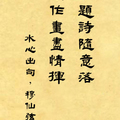 題詩隨意落
作畫盡情揮
水心出句，穆仙落